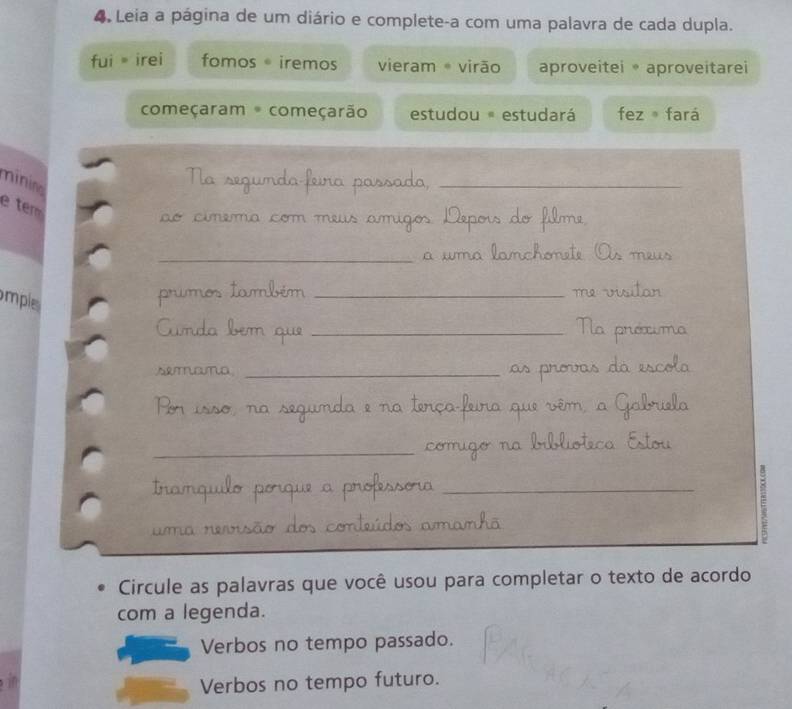 4. Leia a página de um diário e complete-a com uma palavra de cada dupla.
fui • irei fomos • iremos vieram • virão aproveitei • aproveitarei
começaram • começarão estudou • estudará fez • fará
Na segunda-feira passada, ____________________
ao cinema com meus amigos. Depois do filme,
____________________ a uma lanchonete. Os meus
primos também ____________________ me visitar.
Ainda bem que ____________________. Na próxima
semana, ____________________ as provas da escola.
Por isso, na segunda e na terça-feira que vêm, a Gabriela
____________________ comigo na biblioteca. Estou
tranquilo porque a professora ____________________
uma revisão dos conteúdos amanhã.
• Circule as palavras que você usou para completar o texto de acordo
com a legenda.
Verbos no tempo passado.
Verbos no tempo futuro.